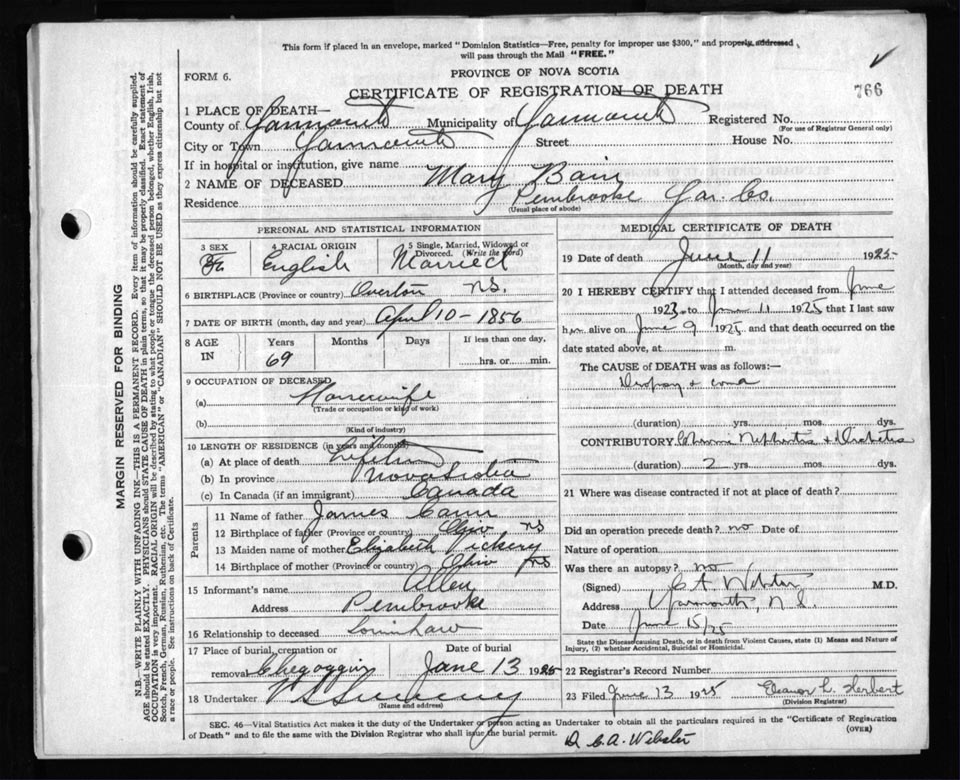 This form if placed in an envelope, marked "Dominion Statistics—Free, penalty for improper use $300," and properly addressed
will pass through the Mail "FREE."
FORM 6.
PROVINCE OF NOVA SCOTIA
CERTIFICATE OF REGISTRATION OF DEATH
766
1 PLACE OF DEATH—
County of Yarmouth Municipality of Yarmouth Registered No.
(For use of Registrar General only)
City or Town Yarmouth Street House No.
If in hospital or institution, give name
2 NAME OF DECEASED Mary Bain
Residence Pembrooke Yar. Co.
(Usual place of abode)
PERSONAL AND STATISTICAL INFORMATION
3 SEX 4 RACIAL ORIGIN 5 Single, Married, Widowed or
Divorced. (Write the word)
English Married
6 BIRTHPLACE (Province or country) Overton NS.
7 DATE OF BIRTH (month, day and year) April 10 - 1856
8 AGE IN Years Months Days If less than one day,
69 hrs. or min.
9 OCCUPATION OF DECEASED
(a) Housewife
(Trade or occupation or kind of work)
(b)
(Kind of industry)
10 LENGTH OF RESIDENCE (in years and months)
(a) At place of death Lifetime
(b) In province Nova Scotia
(c) In Canada (if an immigrant) Canada
Parents
11 Name of father James Cann
12 Birthplace of father (Province or country) Ohio NS
13 Maiden name of mother Elizabeth Vickery
14 Birthplace of mother (Province or country) Ohio NS
15 Informant's name Allen
Address Pembrooke
16 Relationship to deceased
17 Place of burial, cremation or Date of burial
removal Chegoggin June 13 1925
18 Undertaker
(Name and address)
MEDICAL CERTIFICATE OF DEATH
19 Date of death June 11 1925
(Month, day and year)
20 I HEREBY CERTIFY that I attended deceased from June
1923 to June 11 1925 that I last saw
her alive on June 9 1925 and that death occurred on the
date stated above, at m.
The CAUSE OF DEATH was as follows:—
Dropsy + coma
(duration) yrs. mos. dys.
CONTRIBUTORY Chronic Nephritis + Diabetes
(duration) 2 yrs. mos. dys.
21 Where was disease contracted if not at place of death?
Did an operation precede death? no Date of
Nature of operation
Was there an autopsy? no
(Signed) C A Webster M.D.
Address Yarmouth, N.S.
Date June 15/25
State the Disease causing Death, or in death from Violent Causes, state (1) Means and Nature of
Injury, (2) whether Accidental, Suicidal or Homicidal.
22 Registrar's Record Number
23 Filed June 13 1925 Eleanor L. Herbert
(Division Registrar)
SEC. 46—Vital Statistics Act makes it the duty of the Undertaker or person acting as Undertaker to obtain all the particulars required in the "Certificate of Registration
of Death" and to file the same with the Division Registrar who shall issue the burial permit.
(OVER)
D. C. A. Webster
MARGIN RESERVED FOR BINDING
N.B.—WRITE PLAINLY WITH UNFADING INK—THIS IS A PERMANENT RECORD. Every item of information should be carefully supplied.
AGE should be stated EXACTLY. PHYSICIANS should STATE CAUSE OF DEATH in plain terms, so that it may be properly classified. Exact statement of
OCCUPATION is very important. RACIAL ORIGIN will be described by stating to what people or tongue the deceased person belonged, whether English, Irish,
Scotch, French, German, Russian, Ruthenian, etc. The terms "AMERICAN" or "CANADIAN" SHOULD NOT BE USED as they express citizenship but not
a race or people. See instructions on back of Certificate.